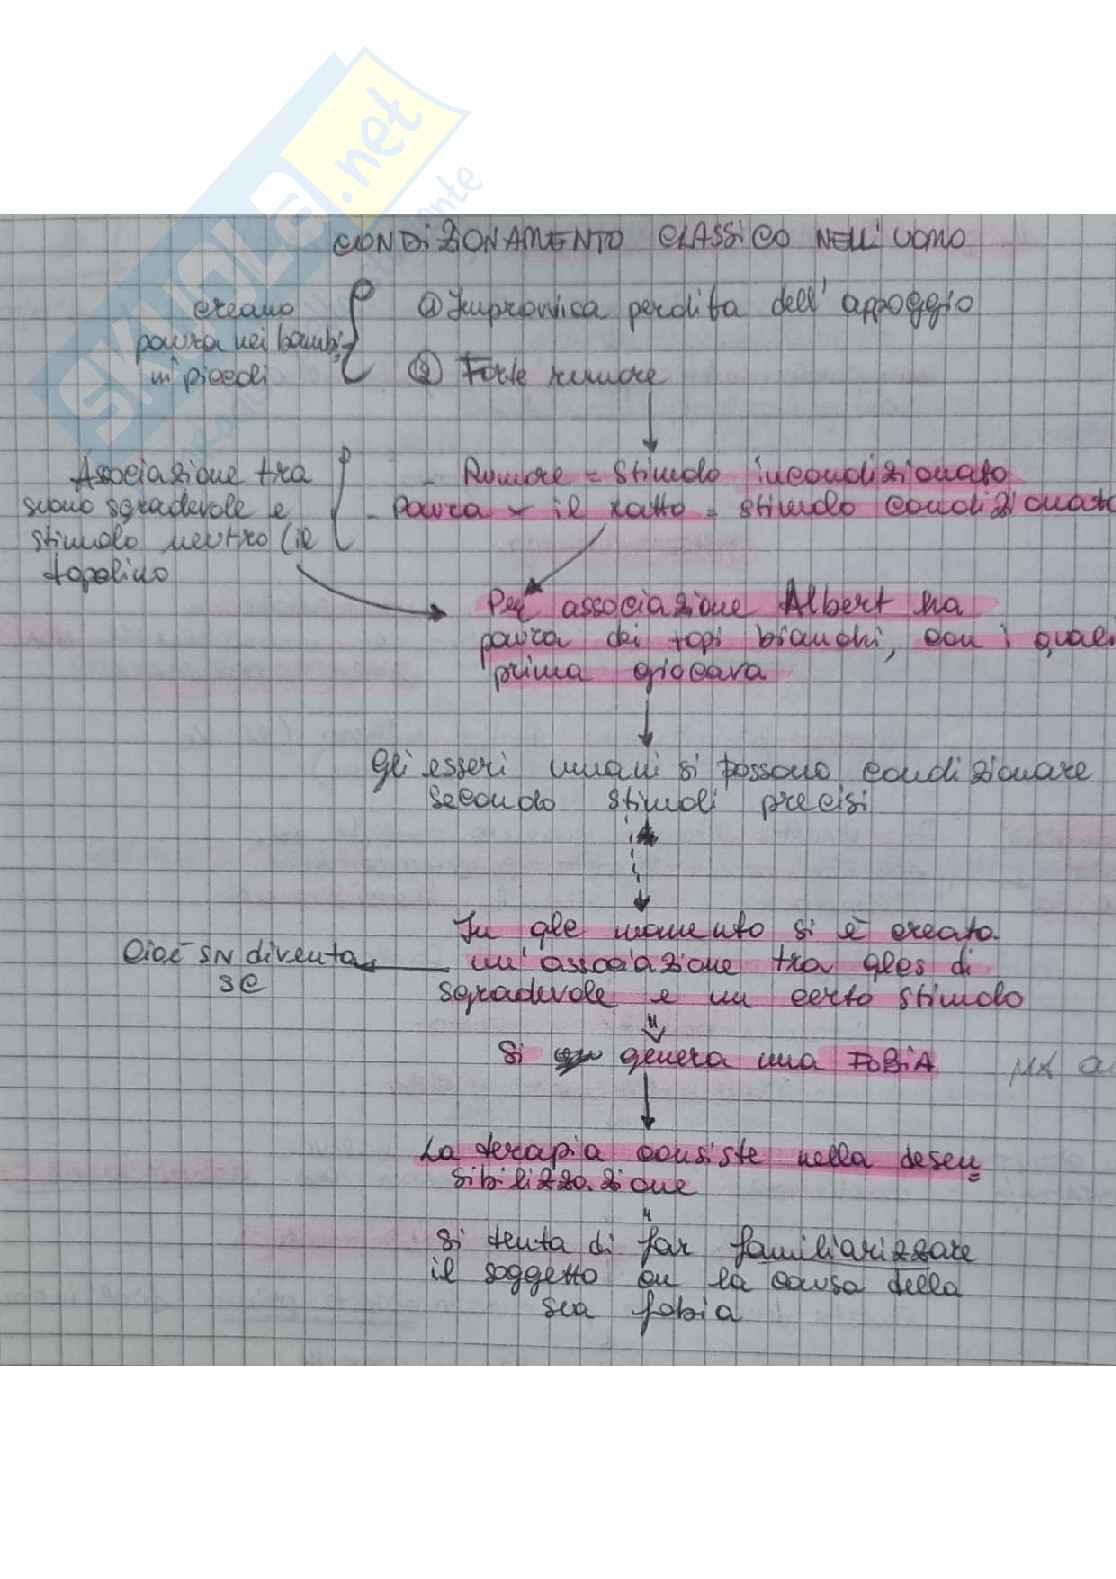 SKUOLA.net
CONDIZIONAMENTO CLASSICO NELL'UOMO
creano
paura nei bambi
ni piccoli
① Improvvisa perdita dell'appoggio
② Forte rumore
Associazione tra
suono sgradevole e
stimolo neutro (il
topolino
- Rumore = stimolo incondizionato
- Paura il ratto = stimolo condizionat
Per associazione Albert ha
paura dei topi bianchi, con i qual
prima giocava
Gli esseri umani si possono condizionare
secondo stimoli precisi
In qle momento si è creato
un'associazione tra qlcs di
sgradevole e un certo stimolo
Cioè SN diventa
SC
Si genera una FOBIA
La terapia consiste nella desen
sibilizzazione
Si tenta di far familiarizzare
il soggetto con la causa della
sua fobia